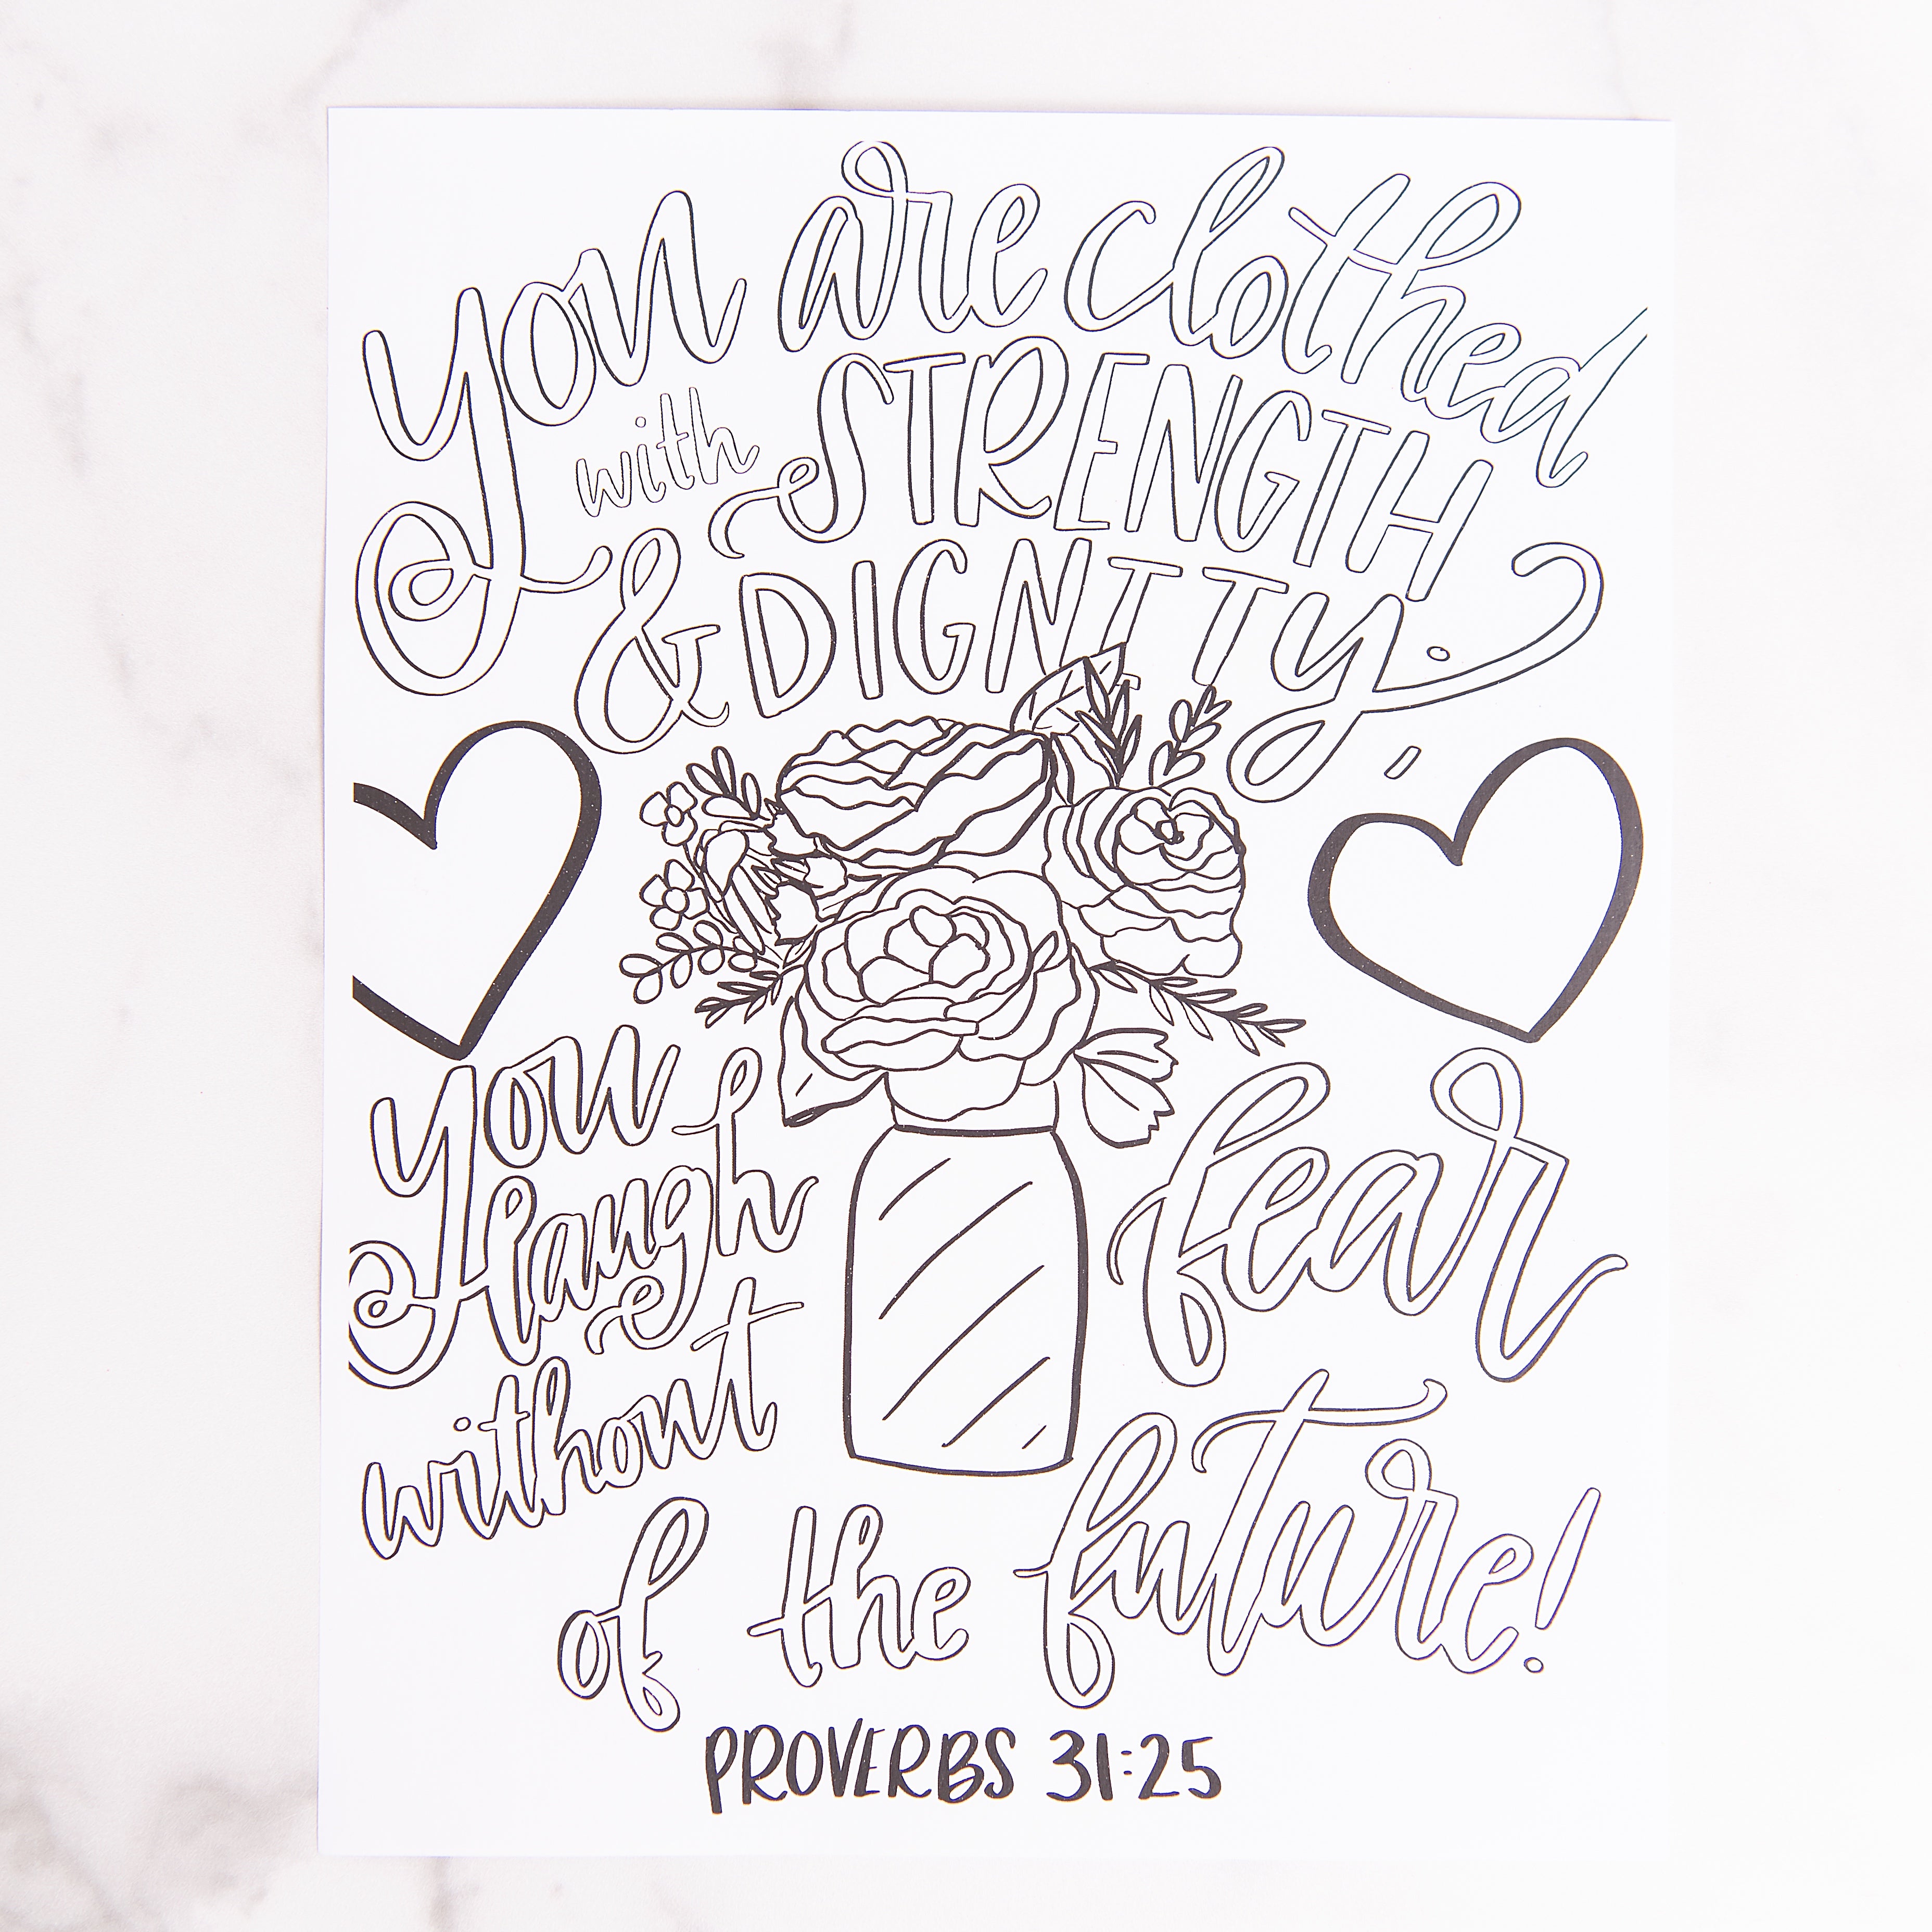 You are clothed
with STRENGTH
& DIGNITY.
You
laugh
without
fear
of the future!
PROVERBS 31:25